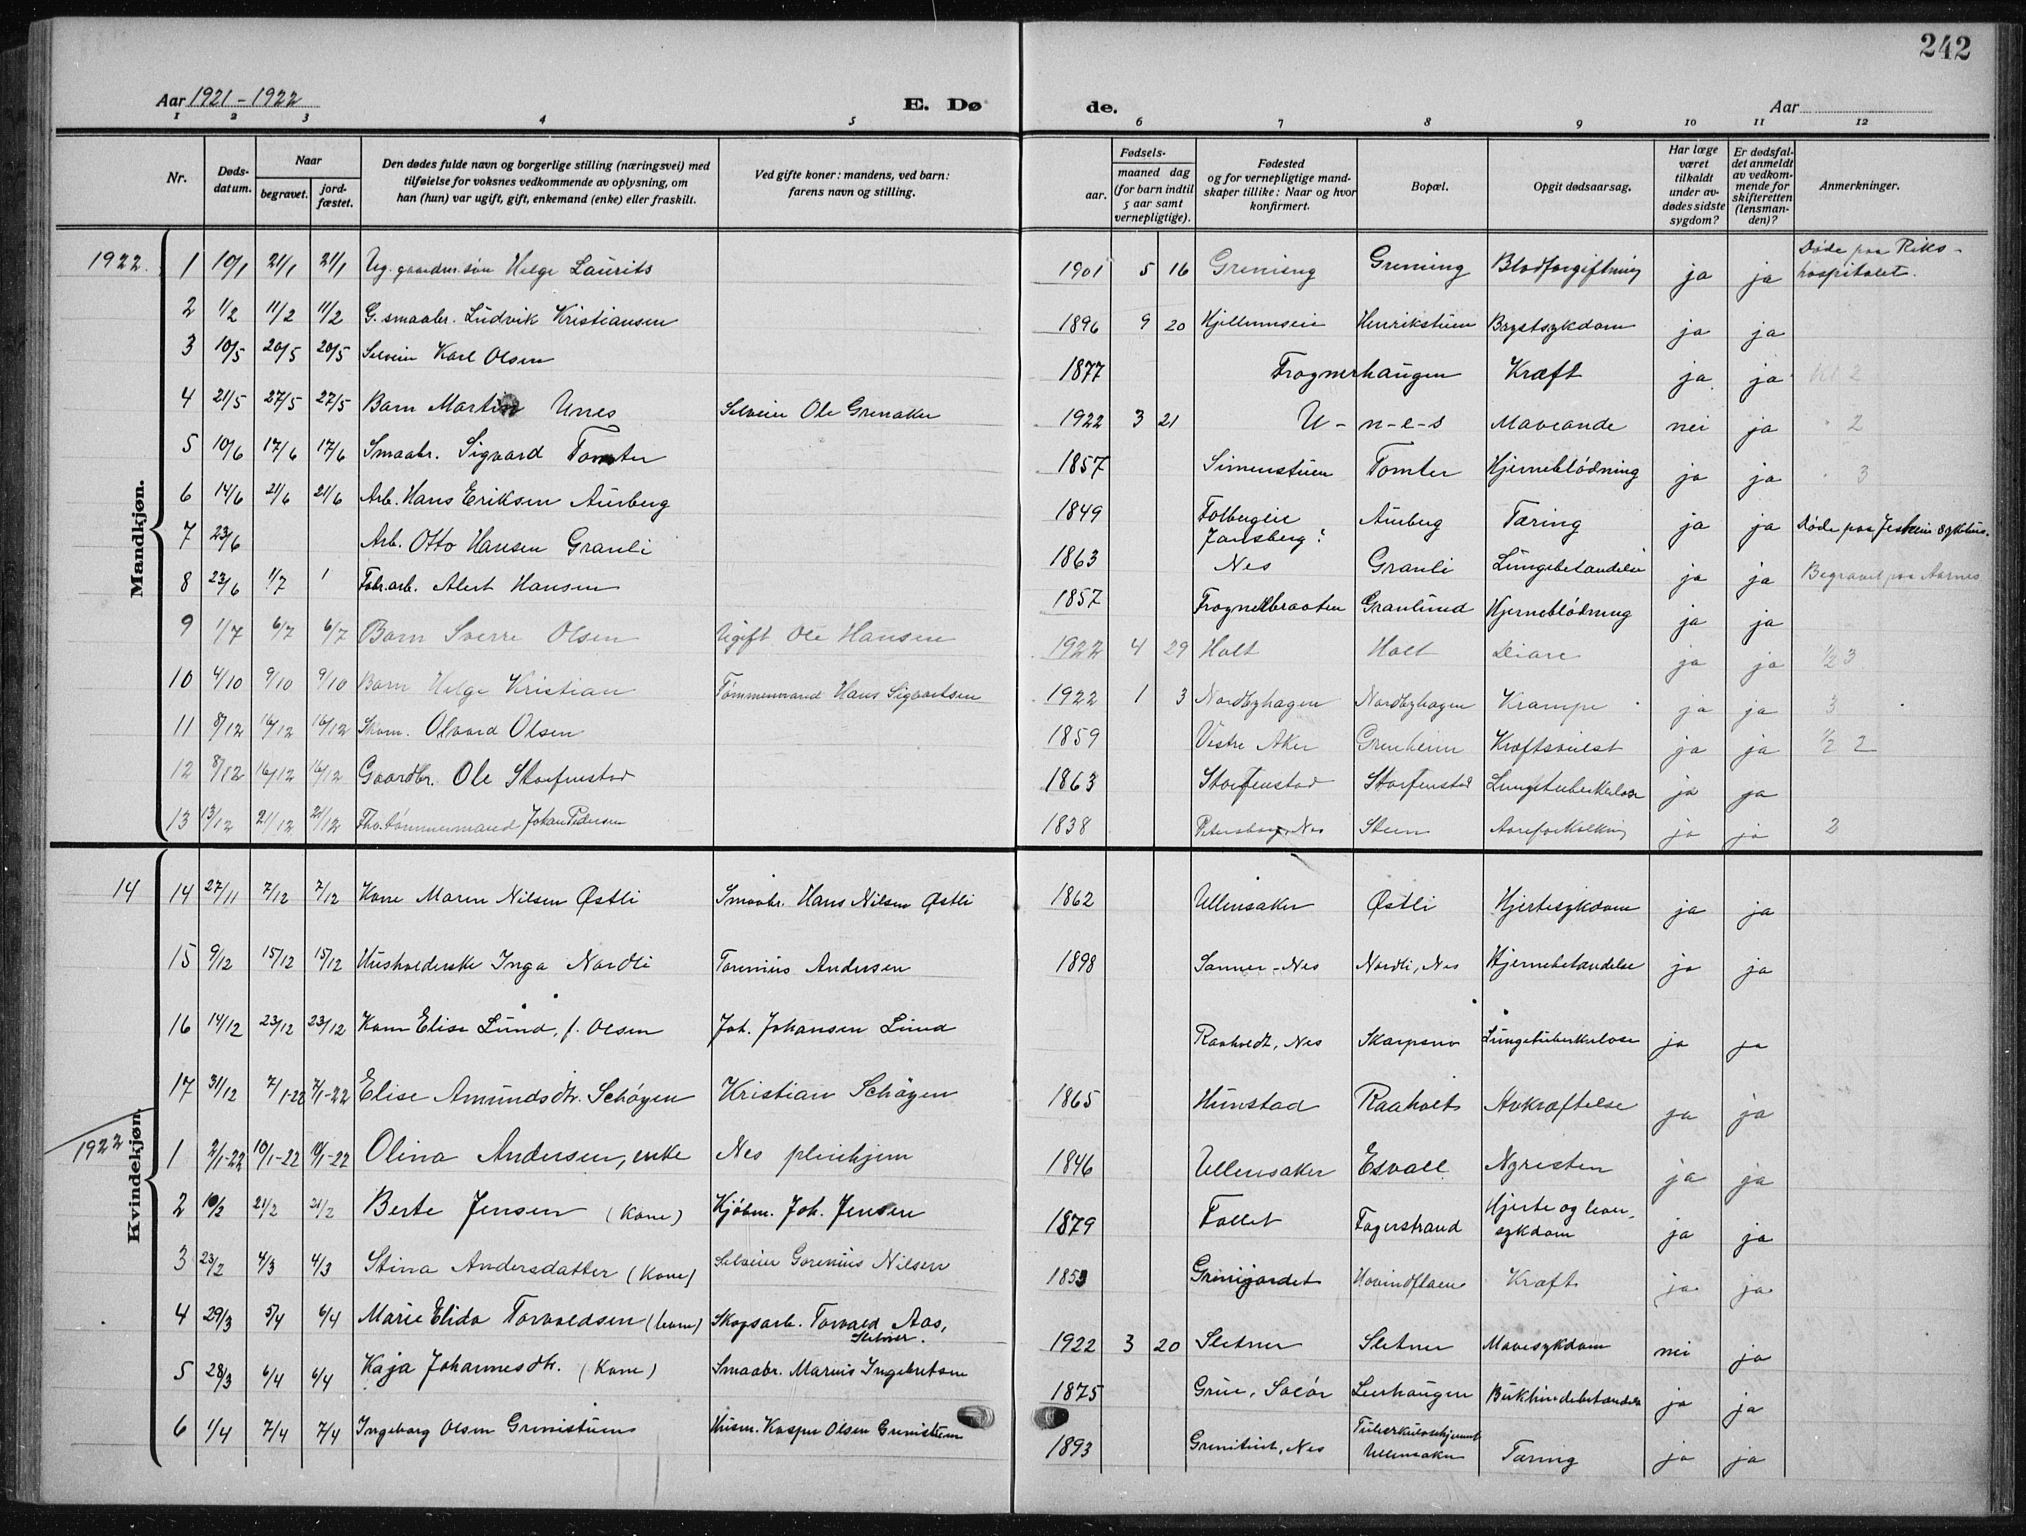 242
Aar 1921-1922 E. Dø de. Aar
1 2 3 4 5 6 7 8 9 10 11 12
Nr. Døds-datum. Naar begravet. jord-fæstet. Den dødes fulde navn og borgerlige stilling (næringsvei) med tilføielse for voksnes vedkommende av oplysning, om han (hun) var ugift, gift, enkemand (enke) eller fraskilt. Ved gifte koner: mandens, ved barn: farens navn og stilling. Fødsels- aar. maaned dag (for barn indtil 5 aar samt vernepligtige). Fødested og for vernepligtige mand-skaper tillike: Naar og hvor konfirmert. Bopæl. Opgit dødsaarsag. Har læge været tilkaldt under av-dødes sidste sygdom? Er dødsfal-det anmeldt av vedkom-mende for skifteretten (lensman-den)? Anmerkninger.
Mandkjøn.
1922. 1 10/1 21/1 21/1 Ug. gaardm.søn Helge Laurits 1901 5 16 Grening Grening Blodforgiftning ja ja Døde paa Riks-hospitalet.
2 1/2 11/2 11/2 G. smaabr. Ludvik Kristiansen 1896 9 20 Henrikstuen Brystsykdom ja ja
3 10/5 20/5 20/5 Selveier Karl Olsen 1877 Frognerhaugen Kræft ja ja 2
4 21/5 27/5 27/5 Barn Martin Unes Selveier Ole Grenaker 1922 3 21 U-n-e-s Maveonde nei ja 2
5 10/6 17/6 17/6 Smaabr. Sigvard Tomter 1857 Simenstuen Tomter Hjerneblødning ja ja 3
6 14/6 21/6 21/6 Arb. Hans Eriksen Aurberg 1849 Aurberg Tæring ja ja
7 23/6 Arb. Otto Hansen Granli 1863 Nes Granli Lungebetændelse ja ja Døde paa Jessheim sykehus. Begravet paa Aarnes
8 23/6 1/7 1 Fabr.arb. Albert Hansen 1857 Frognerbraaten Granlund Hjerneblødning ja ja
9 1/7 6/7 6/7 Barn Sverre Olsen Ugift Ole Hansen 1922 4 29 Holt Holt Diare ja ja 1/2 3
10 4/10 9/10 9/10 Barn Helge Kristian Tømmermand Hans Sigvartsen 1922 1 3 Nordbyhagen Nordbyhagen Krampe ja ja 3
11 8/12 16/12 16/12 Skom. Olvard Olsen 1859 Vestre Aker Grenheim Kræftsvulst ja ja 1/2 2
12 8/12 16/12 16/12 Gaardbr. Ole Storfenstad 1863 Storfenstad Storfenstad Lungetuberkulose ja ja
13 13/12 21/12 21/12 Fhv. tømmermand Johan Pedersen 1838 Petersborg, Nes Steen Aareforkalkning ja ja 2
Kvindekjøn.
14 14 27/11 7/12 7/12 Kone Maren Nilsen Østli Smaabr. Hans Nilsen Østli 1862 Ullensaker Østli Hjertesykdom ja ja
15 9/12 15/12 15/12 Husholderske Inga Nordli Torenius Andersen 1898 Sanner-Nes Nordli, Nes Hjernebetændelse ja ja
16 14/12 23/12 23/12 Kone Elise Lund, f. Olsen Joh. Johansen Lund Raaholdt, Nes Skarpsno Lungetuberkulose ja ja
17 31/12 7/1-22 7/1-22 Elise Amundsdtr. Schøyen Kristian Schøyen 1865 Hunstad Raaholt Avkræftelse ja ja
1922 1 2/1-22 10/1-22 10/1-22 Olina Andersen, enke Nes pleiehjem 1846 Ullensaker Esvall Nyresten ja ja
2 10/2 21/2 21/2 Berte Jensen (Kone) Kjøbm. Joh. Jensen 1879 Fallet Fagerstrand Hjerte og lever-sykdom ja ja
3 23/2 4/3 4/3 Stina Andersdatter (Kone) Selveier Gorenius Nilsen 1853 Grinigardet Hovindflaen Kræft ja ja
4 29/3 5/4 6/4 Marie Elida Torvaldsen (barn) Skogsarb. Torvald Aas, Sletner. 1922 3 20 Sletner Sletner Mavesykdom nei ja
5 28/3 6/4 6/4 Kaja Johannesdtr. (Kone) Smaabr. Marius Ingebretsen 1875 Grue, Solør Leerhaugen Bukhindebetændelse ja ja
6 1/4 7/4 7/4 Ingeborg Olsen Grinistuen Husm. Kasper Olsen Grinistuen 1893 Nes Tuberkulosehjemmet Ullensaker Tæring ja ja